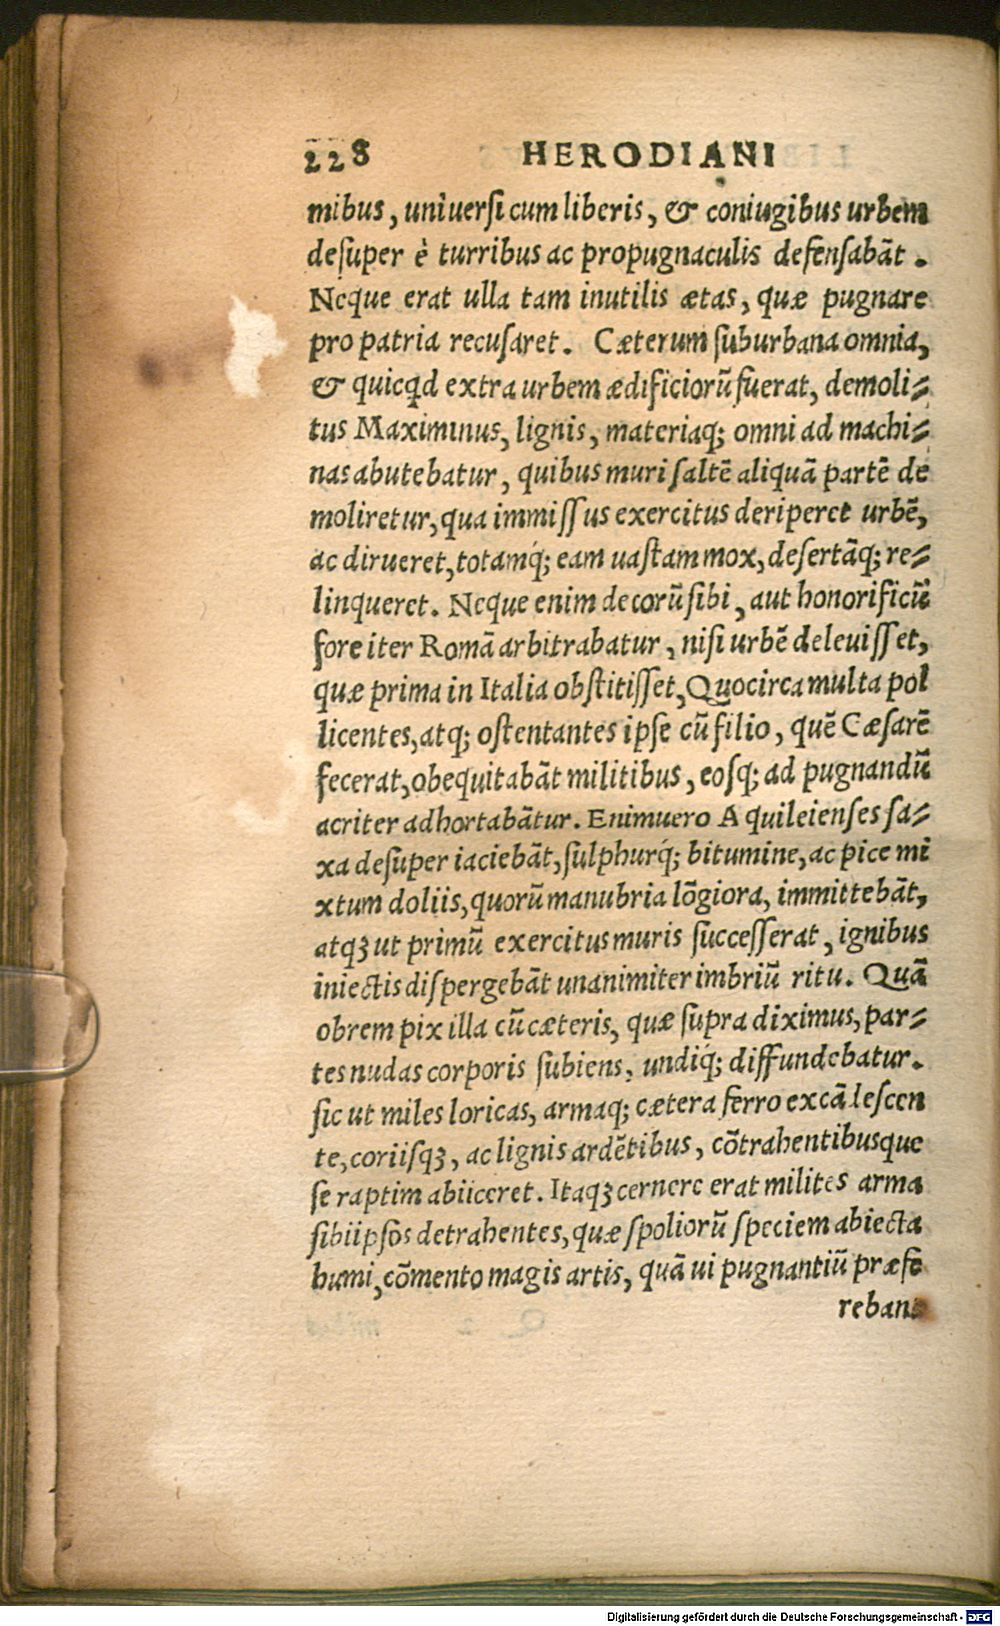 228 HERODIANI
mibus, uniuersi cum liberis, & coniugibus urbem
desuper è turribus ac propugnaculis defensabāt.
Neque erat ulla tam inutilis ætas, quæ pugnare
pro patria recusaret. Cæterum suburbana omnia,
& quicqd extra urbem ædificiorū fuerat, demoli⸗
tus Maximinus, lignis, materiaq; omni ad machi⸗
nas abutebatur, quibus muri saltē aliquā partē de
moliretur, qua immissus exercitus deriperet urbē,
ac dirueret, totamq́; eam uastam mox, desertāq; re⸗
linqueret. Neque enim decorū sibi, aut honorificū
fore iter Romā arbitrabatur, nisi urbē deleuisset,
quæ prima in Italia obstitisset, Quocirca multa pol
licentes, atq; ostentantes ipse cū filio, quē Cæsarē
fecerat, obequitabāt militibus, eosq; ad pugnandū
acriter adhortabātur. Enimuero Aquileienses sa⸗
xa desuper iaciebāt, sulphurq́; bitumine, ac pice mi
xtum doliis, quorū manubria lōgiora, immittebāt,
atqꝫ ut primū exercitus muris successerat, ignibus
iniectis dispergebāt unanimiter imbriū ritu. Quā
obrem pix illa cū cæteris, quæ supra diximus, par⸗
tes nudas corporis subiens, undiq́; diffundebatur.
sic ut miles loricas, armaq; cætera ferro excālescen
te, coriisqꝫ, ac lignis ardētibus, cōtrahentibusque
se raptim abiiceret. Itaqꝫ cernere erat milites arma
sibiipsōs detrahentes, quæ spoliorū speciem abiecta
humi, cōmento magis artis, quā ui pugnantiū præfe
rebant
Digitalisierung gefördert durch die Deutsche Forschungsgemeinschaft - DFG